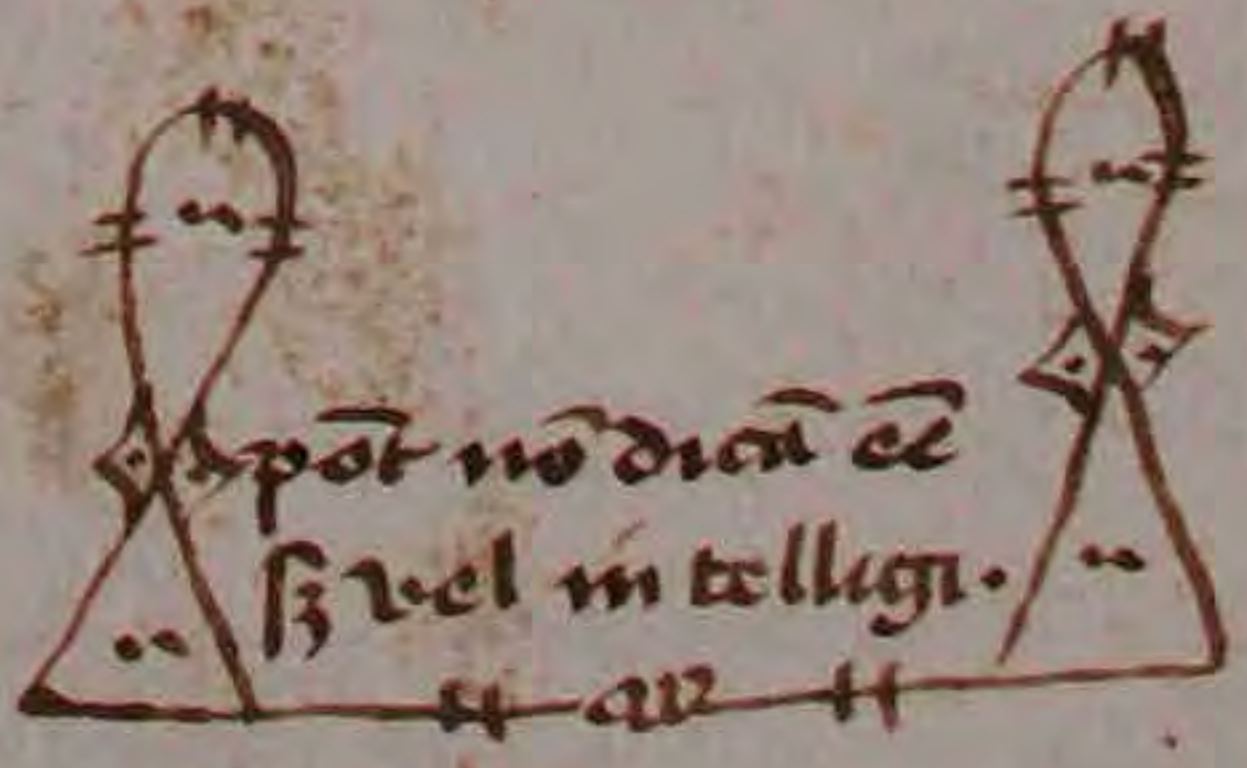 pōt nō dicā cē
ſꝫ vel in telligi.